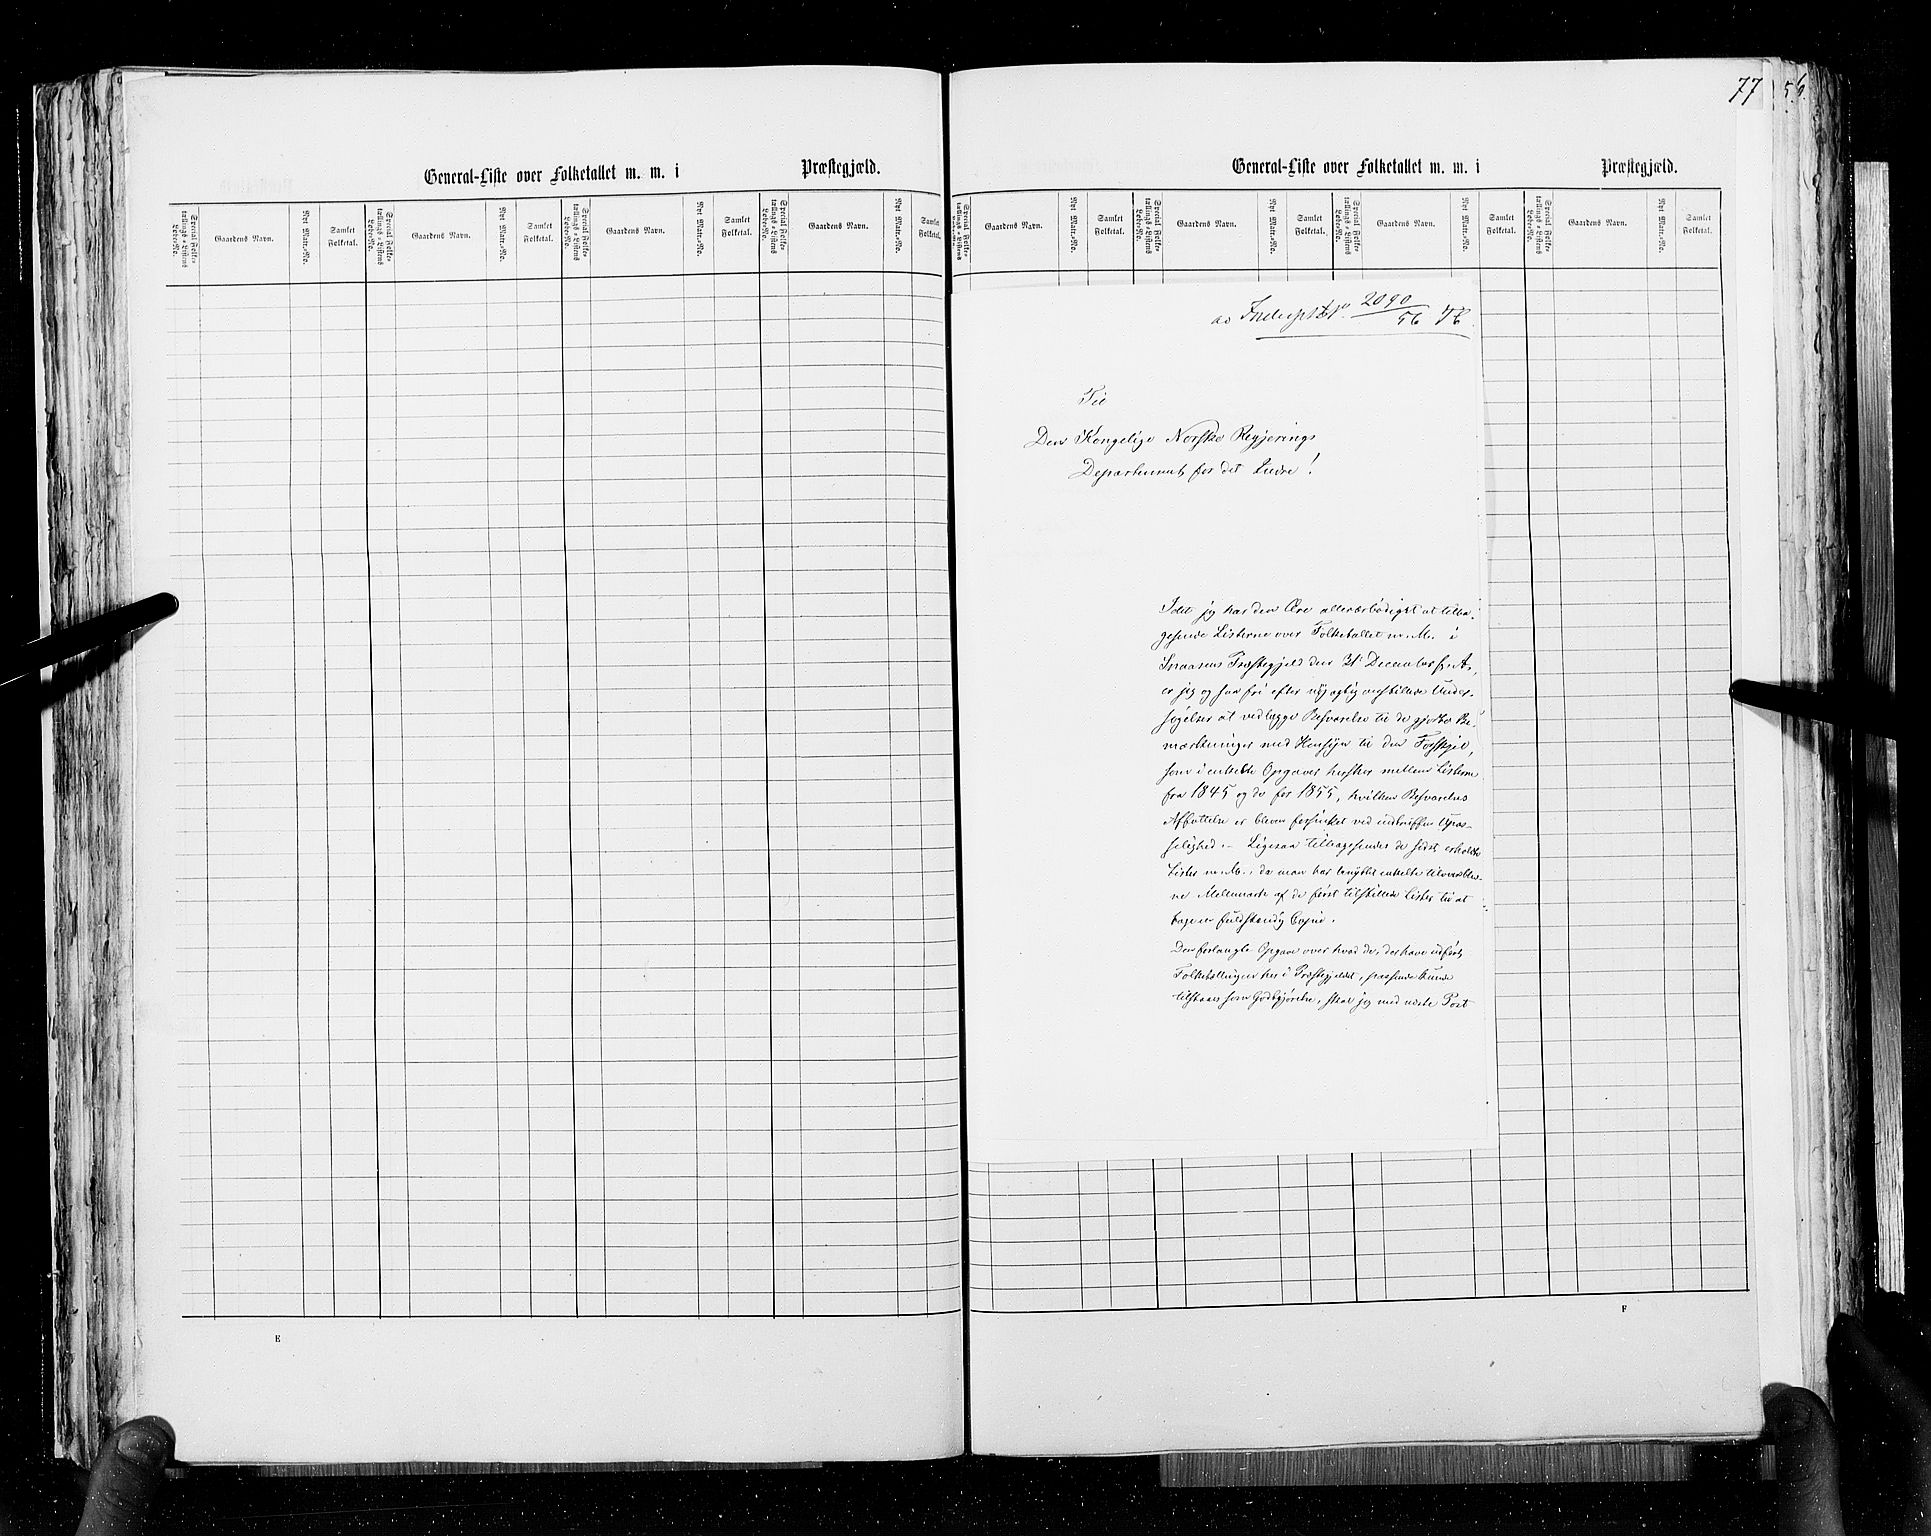 General-Liste over Folketallet m. m. i Præstegjæld.
Special Folketællings-Listens Løbe-No. Gaardens Navn. Nyt Matr.-No. Samlet Folketal. Special Folketællings-Listens Løbe-No. Gaardens Navn. Nyt Matr.-No. Samlet Folketal. Special Folketællings-Listens Løbe-No. Gaardens Navn. Nyt Matr.-No. Samlet Folketal. Special Folketællings-Listens Løbe-No. Gaardens Navn. Nyt Matr.-No. Samlet Folketal.
E
77
56.
General-Liste over Folketallet m. m. i Præstegjæld.
Special Folketællings-Listens Løbe-No. Gaardens Navn. Nyt Matr.-No. Samlet Folketal. Special Folketællings-Listens Løbe-No. Gaardens Navn. Nyt Matr.-No. Samlet Folketal. Special Folketællings-Listens Løbe-No. Gaardens Navn. Nyt Matr.-No. Samlet Folketal. Special Folketællings-Listens Løbe-No. Gaardens Navn. Nyt Matr.-No. Samlet Folketal.
2090
56
Til
Den Kongelige Norske Regjerings
Departement for det Indre!
Idet jeg har den Ære allerærbødigst at tilba-
gesende Listerne over Folketallet m. M. i
Snaasens Præstegjeld den 31 December f. A.,
er jeg og saa fri efter nøjagtig anstillede Under-
søgelser at vedlægge Besvarelse til de gjorte Be-
mærkninger med Hensyn til den Forskjel,
som i enkelte Opgaver hersker mellem Listerne
fra 1845 og de for 1855, hvilken Besvarelses
Affattelse er bleven forsinket ved indtruffen Upas-
selighed. – Ligesaa tilbagesendes de sidst erholdte
Lister m. M., da man har benyttet enkelte tiloversblev-
ne af de først tilstillede Lister til at
tage en fuldstændig Copie.
Den forlangte Opgave over hvad de, der have udført
Folketællingen her i Præstegjeldet, passende kunde
tilstaaes som Godtgjørelse, skal jeg med næste Post
F